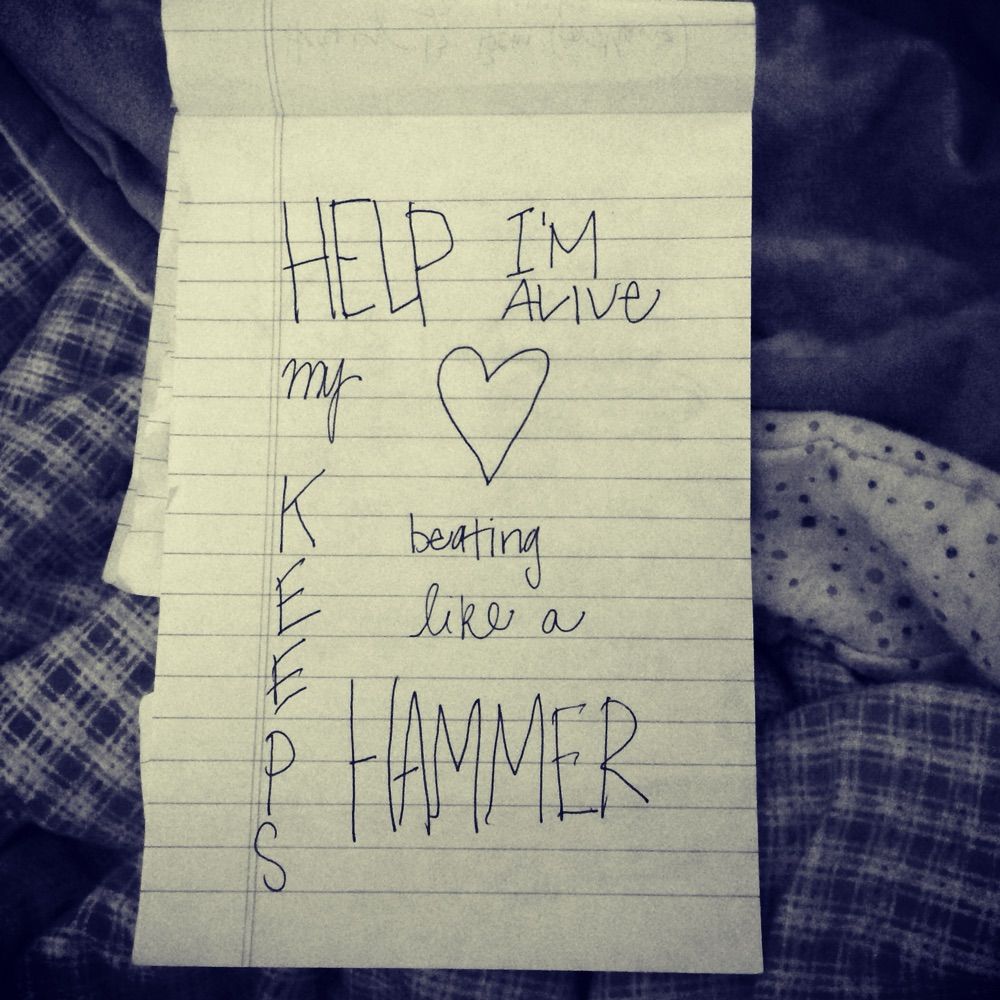 HELP I'M
ALIVE
my ♡
KEEPS
beating
like a
HAMMER